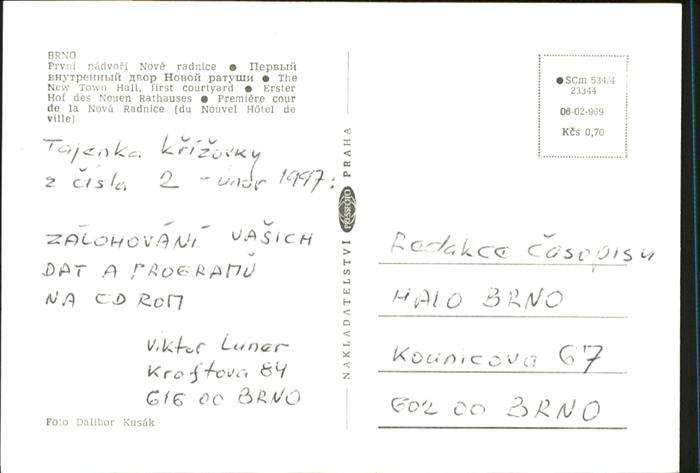 BRNO
První nádvoří Nové radnice ● Первый
внутренный двор Новой ратуши ● The
New Town Hall, first courtyard ● Erster
Hof des Neuen Rathauses ● Première cour
de la Nová Radnice (du Nouvel Hôtel de
ville)
Tajenka křížovky
z čísla 2 - únor 1997:
ZÁLOHOVÁNÍ VAŠICH
DAT A PROGRAMŮ
NA CD ROM
Viktor Luner
Kroftova 84
616 00 BRNO
Foto Dalibor Kusák
NAKLADATELSTVÍ PRESSFOTO PRAHA
●SCm 534/4
23344
06-02-969
Kčs 0,70
Redakce časopisu
HALO BRNO
Kounicova 67
602 00 BRNO